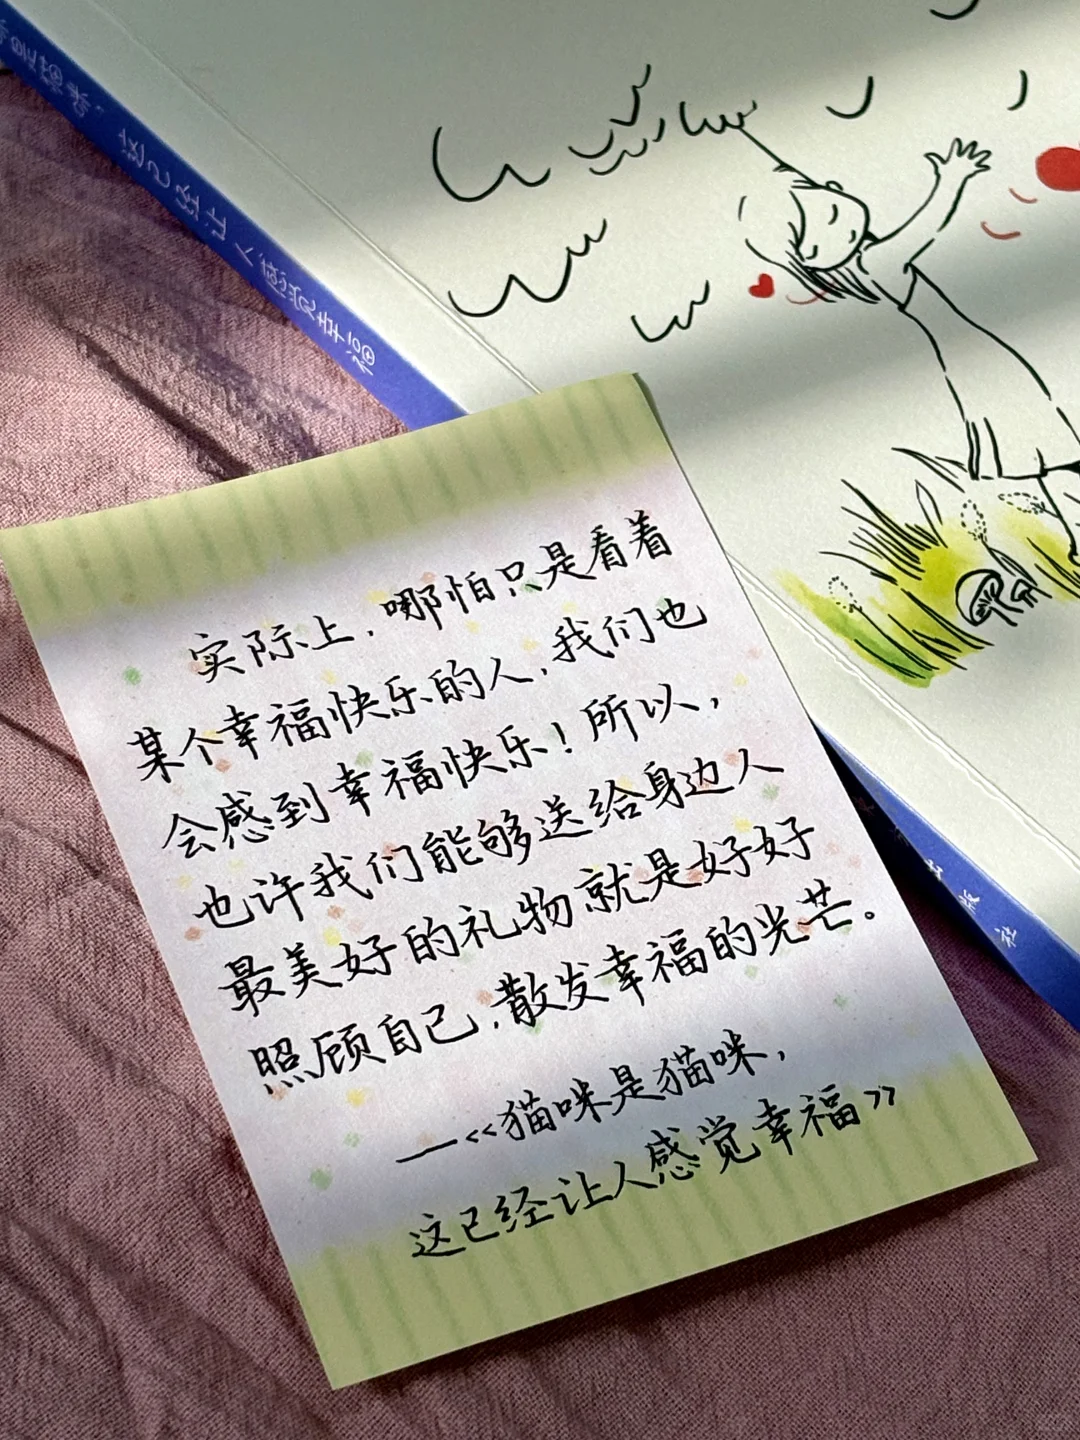 这已经让人感觉幸福
出版社
实际上，哪怕只是看着
某个幸福快乐的人，我们也
会感到幸福快乐！所以，
也许我们能够送给身边人
最美好的礼物就是好好
照顾自己，散发幸福的光芒。
—《猫咪是猫咪，
这已经让人感觉幸福》